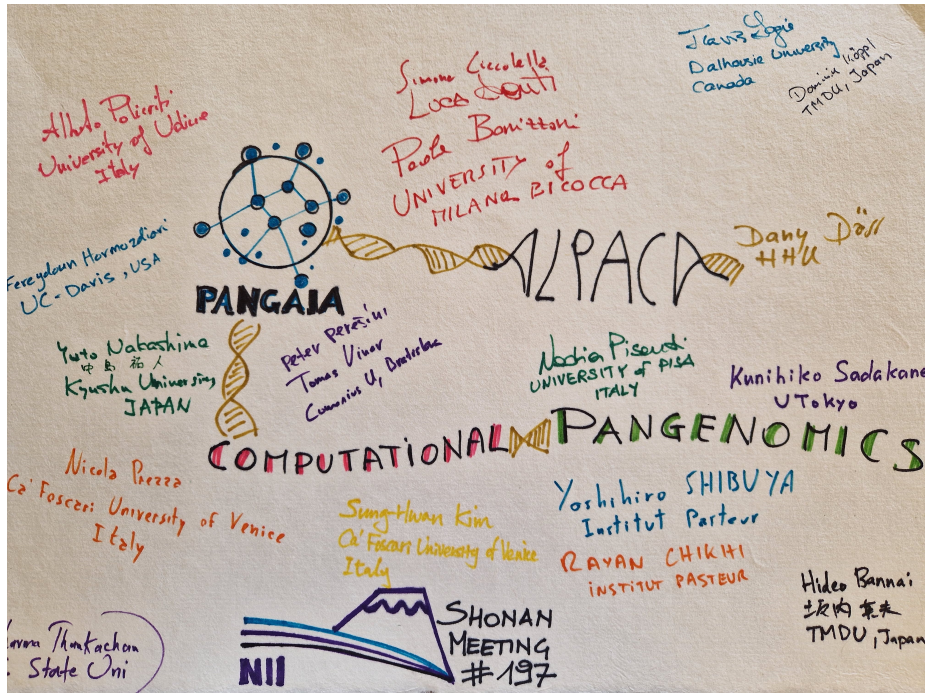 Travis Gagie
Dalhousie University
Canada
Dominik Köppl
TMDU, Japan
Simone Ciccolella
LUCA DENTI
Paola Bonizzoni
UNIVERSITY of
MILANO BICOCCA
Alberto Policriti
University of Udine
Italy
Fereydoun Hormozdiari
UC-Davis, USA
PANGAIA
ALPACA
Dany Dörr
HHU
Yuto Nakashima
中島 祐人
Kyushu University
JAPAN
Peter Perešíni
Tomas Vinar
Comenius U, Bratislava
Nadia Pisanti
UNIVERSITY of PISA
ITALY
Kunihiko Sadakane
UTokyo
COMPUTATIONAL PANGENOMICS
Nicola Prezza
Ca' Foscari University of Venice
Italy
Sung-Hwan Kim
Ca' Foscari University of Venice
Italy
Yoshihiro SHIBUYA
Institut Pasteur
RAYAN CHIKHI
INSTITUT PASTEUR
Hideo Bannai
坂内 英夫
TMDU, Japan
Thankachan
State Uni
NII
SHONAN
MEETING
#197